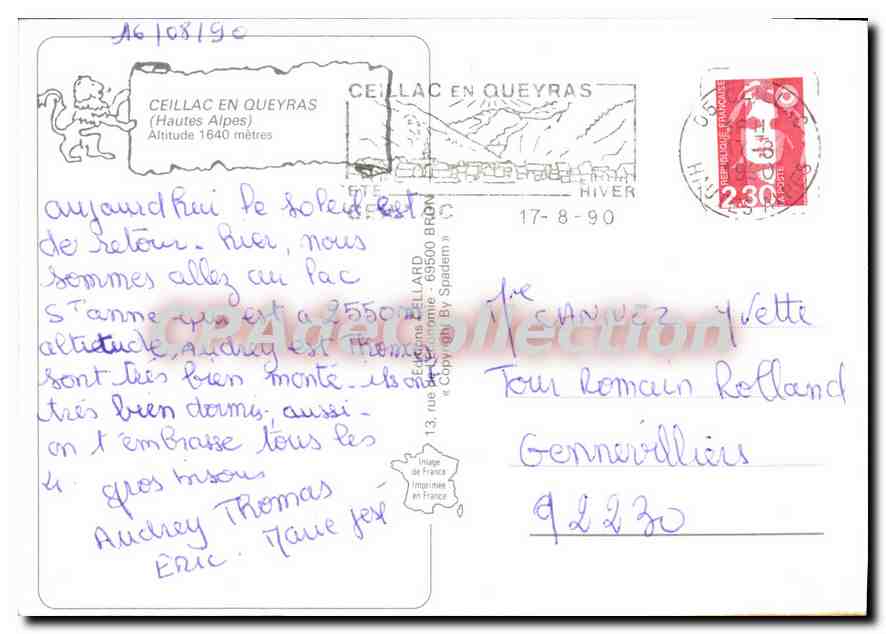 16/08/90
CEILLAC EN QUEYRAS
(Hautes Alpes)
Altitude 1640 mètres
CEILLAC EN QUEYRAS
ETE
HIVER
17-8-90
REPUBLIQUE FRANÇAISE
2,30
LA POSTE
aujourdhui le soleil est
de retour. hier, nous
sommes allez au lac
St anne qui est a 2550m
altitude. Audrey est Thomas
sont très bien monté. ils ont
très bien dormis, aussi.
on t'embrasse tous les
4. gros bisous
Audrey Thomas
Eric. Marie José
Editions CELLARD
13, rue de l'Economie - 69500 BRON
« Copyright By Spadem »
Image
de France
Imprimée
en France
Yvette
Tour Romain Rolland
Gennevilliers
92230
CPAdeCollection